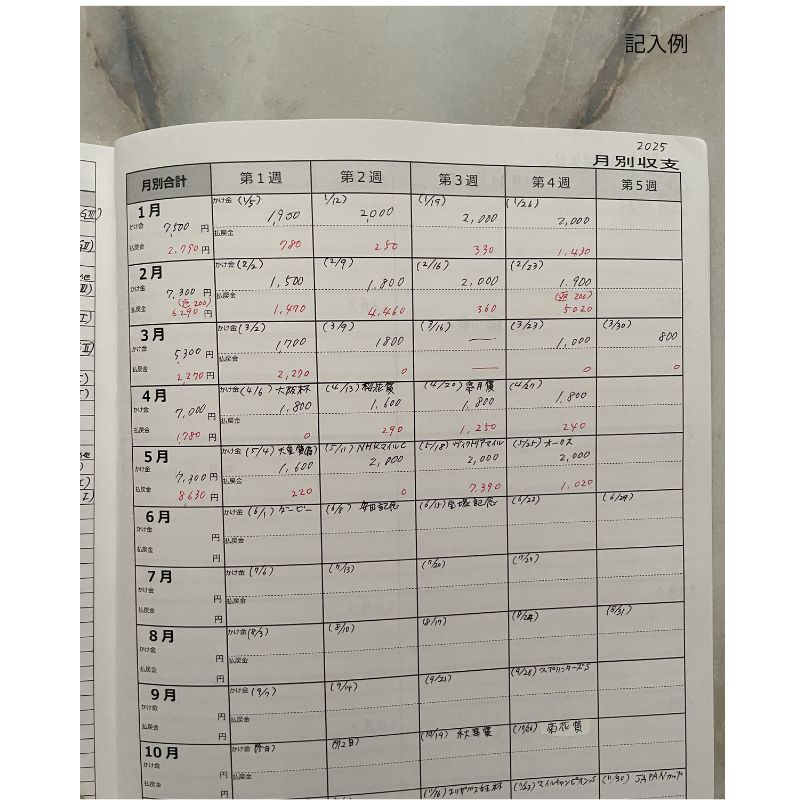 記入例
2025
月別収支
月別合計 第1週 第2週 第3週 第4週 第5週
1月 かけ金 (1/5) (1/12) (1/19) (1/26)
かけ金 7,500 円 1,900 2,000 2,000 2,000
払戻金 円 払戻金 780 250 330
2月 かけ金 (2/2) (2/9) (2/16) (2/23)
かけ金 7,300 円 1,500 1,800 2,000 1,900
(返 200) (返 200)
払戻金 6,290 円 払戻金 1,470 4,460 360 5020
3月 かけ金 (3/2) (3/9) (3/16) (3/23) (3/30)
かけ金 5,300 円 1,700 1800 — 1,000 800
払戻金 2,270 円 払戻金 2,270 0 — 0 0
4月 かけ金 (4/6) 大阪杯 (4/13) 桜花賞 (4/20) 皐月賞 (4/27)
かけ金 7,000 円 1,800 1,600 1,800 1,800
払戻金 1780 円 払戻金 0 290 1,250 240
5月 かけ金 (5/4) 天皇賞 (5/11) NHKマイルC (5/18) ヴィクトリアマイル (5/25) オークス
かけ金 7,300 円 1,600 2,000 2,000 2,000
払戻金 8630 円 払戻金 220 0 7,390 1,020
6月 かけ金 (6/1) ダービー (6/8) 安田記念 (6/15) 宝塚記念 (6/22) (6/29)
かけ金 円
払戻金 円 払戻金
7月 かけ金 (7/6) (7/13) (7/20) (7/27)
かけ金 円
払戻金 円 払戻金
8月 かけ金 (8/3) (8/10) (8/17) (8/24) (8/31)
かけ金 円
払戻金 円 払戻金
9月 かけ金 (9/7) (9/14) (9/21) (9/28) スプリンターズS
かけ金 円
払戻金 円 払戻金
10月 かけ金 (10/19) 秋華賞 (10/26) 菊花賞
かけ金 円
払戻金 円 払戻金
(11/16) エリザベス女王杯 (11/23) マイルチャンピオンS (11/30) JAPANカップ